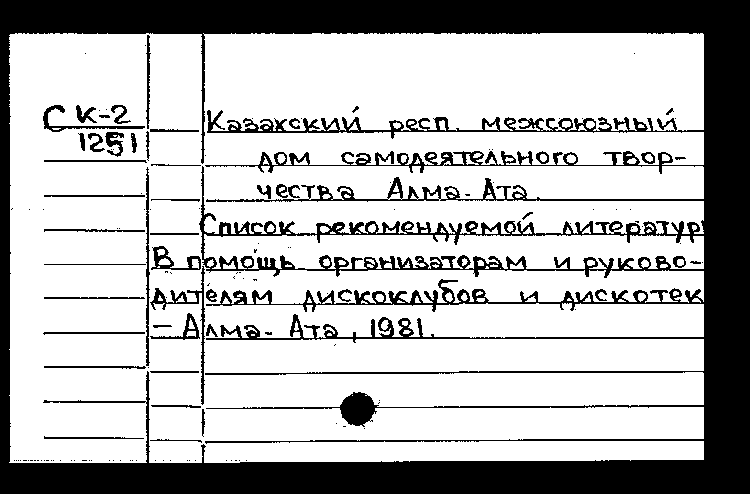 СК-2
1251
Казахский респ. межсоюзный
дом самодеятельного твор-
чества Алма-Ата.
Список рекомендуемой литератур
В помощь организаторам и руково-
дителям дискоклубов и дискотек
– Алма-Ата, 1981.